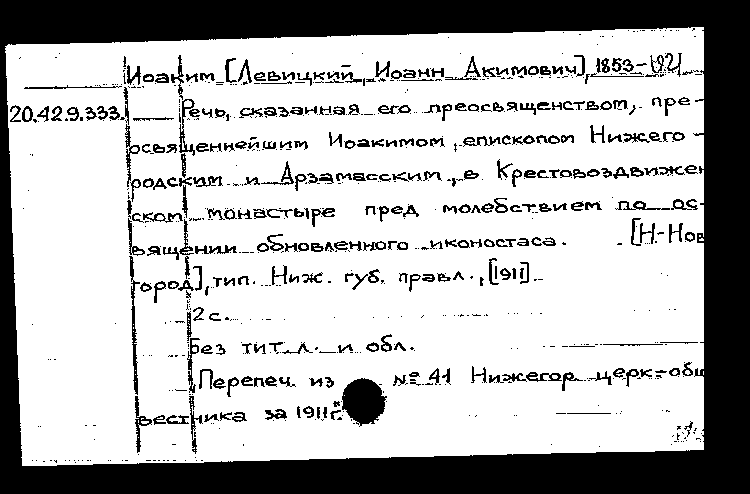 Иоаким [Левицкий, Иоанн Акимович], 1853-1921
20.42.9.333. Речь, сказанная его преосвященством, пре-
освященнейшим Иоакимом, епископом Нижего-
родским и Арзамасским, в Крестовоздвижен
ском монастыре пред молебствием по ос-
вящении обновленного иконостаса. [Н.-Нов
город], тип. Ниж. губ. правл., [1911].
2 с.
Без тит. л. и обл.
Перепеч. из № 41 Нижегор. церк.-общ
вестника за 1911 г.